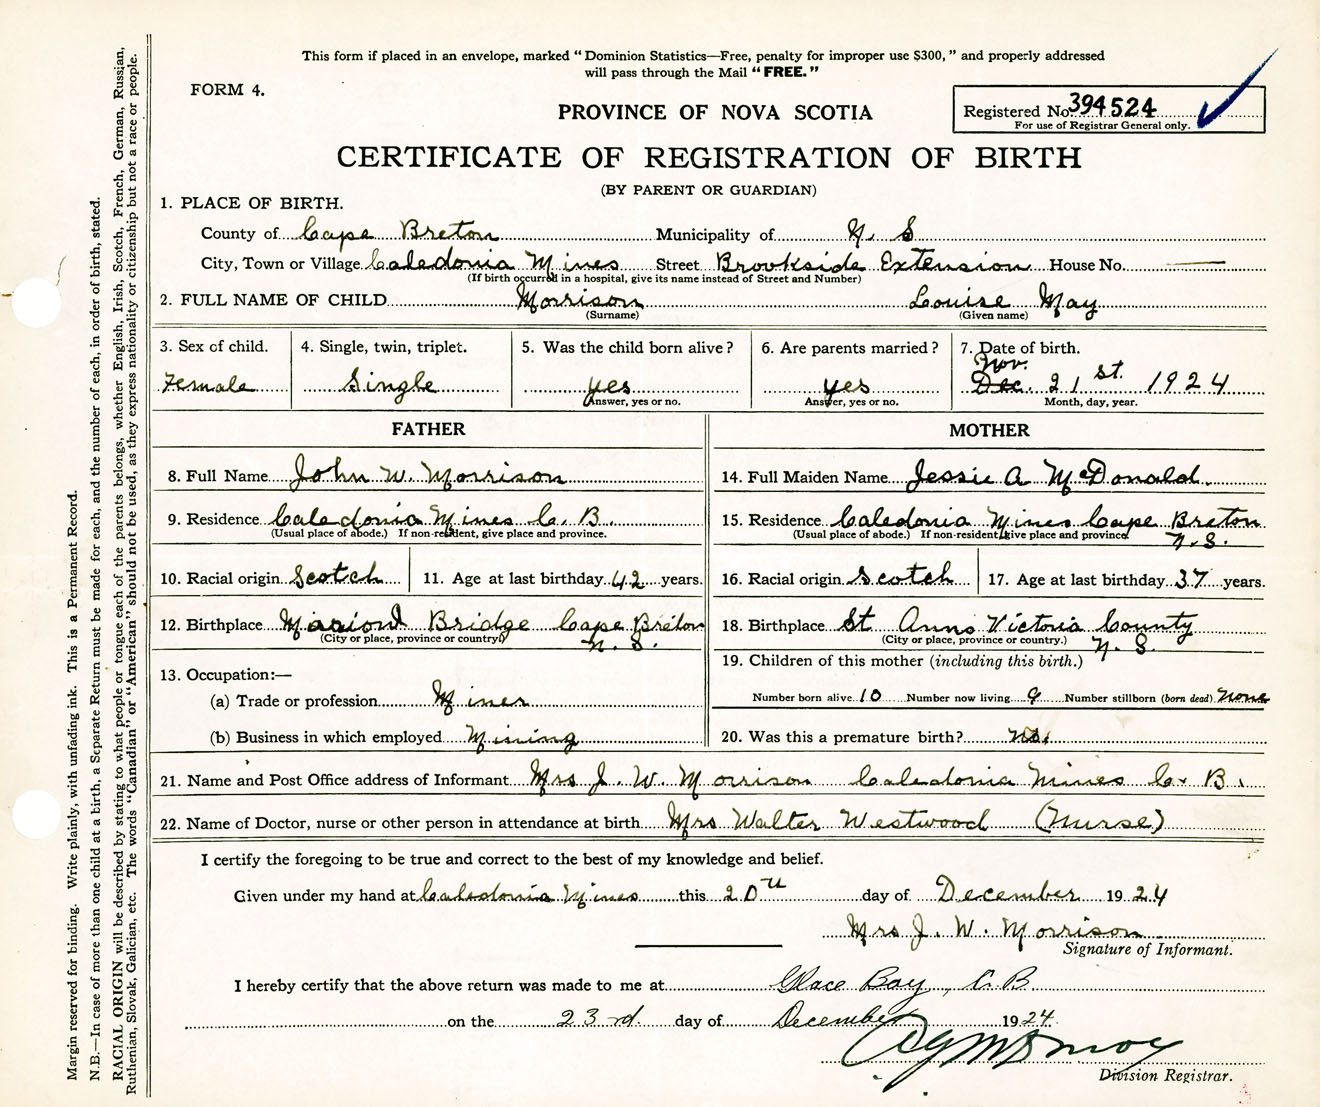 This form if placed in an envelope, marked "Dominion Statistics—Free, penalty for improper use $300," and properly addressed
will pass through the Mail "FREE."
FORM 4.
PROVINCE OF NOVA SCOTIA
Registered No. 394524
For use of Registrar General only.
CERTIFICATE OF REGISTRATION OF BIRTH
(BY PARENT OR GUARDIAN)
1. PLACE OF BIRTH.
County of Cape Breton Municipality of N. S
City, Town or Village Caledonia Mines Street Brookside Extension House No. —
(If birth occurred in a hospital, give its name instead of Street and Number)
2. FULL NAME OF CHILD Morrison Louise May
(Surname) (Given name)
3. Sex of child. 4. Single, twin, triplet. 5. Was the child born alive? 6. Are parents married? 7. Date of birth.
Nov.
Female Single yes yes Dec. 21st. 1924
Answer, yes or no. Answer, yes or no. Month, day, year.
FATHER MOTHER
8. Full Name John W. Morrison 14. Full Maiden Name Jessie A McDonald.
9. Residence Caledonia Mines C. B. 15. Residence Caledonia Mines Cape Breton
(Usual place of abode.) If non-resident, give place and province. (Usual place of abode.) If non-resident, give place and province. N. S.
10. Racial origin Scotch 11. Age at last birthday 42 years. 16. Racial origin Scotch 17. Age at last birthday 37 years.
12. Birthplace Marion Bridge Cape Breton 18. Birthplace St Anns Victoria County
(City or place, province or country) N. S. (City or place, province or country.) N. S.
19. Children of this mother (including this birth.)
13. Occupation:—
(a) Trade or profession Miner Number born alive 10 Number now living 9 Number stillborn (born dead) none
(b) Business in which employed Mining 20. Was this a premature birth? no.
21. Name and Post Office address of Informant Mrs J. W. Morrison Caledonia Mines C. B.
22. Name of Doctor, nurse or other person in attendance at birth Mrs Walter Westwood (Nurse)
I certify the foregoing to be true and correct to the best of my knowledge and belief.
Given under my hand at Caledonia Mines this 20th day of December 1924
Mrs J. W. Morrison
Signature of Informant.
I hereby certify that the above return was made to me at Glace Bay, C. B
on the 23rd. day of December 1924.
Division Registrar.
Margin reserved for binding. Write plainly, with unfading ink. This is a Permanent Record.
N.B.—In case of more than one child at a birth, a Separate Return must be made for each, and the number of each, in order of birth, stated.
RACIAL ORIGIN will be described by stating to what people or tongue each of the parents belongs, whether English, Irish, Scotch, French, German, Russian,
Ruthenian, Slovak, Galician, etc. The words "Canadian" or "American" should not be used, as they express nationality or citizenship but not a race or people.